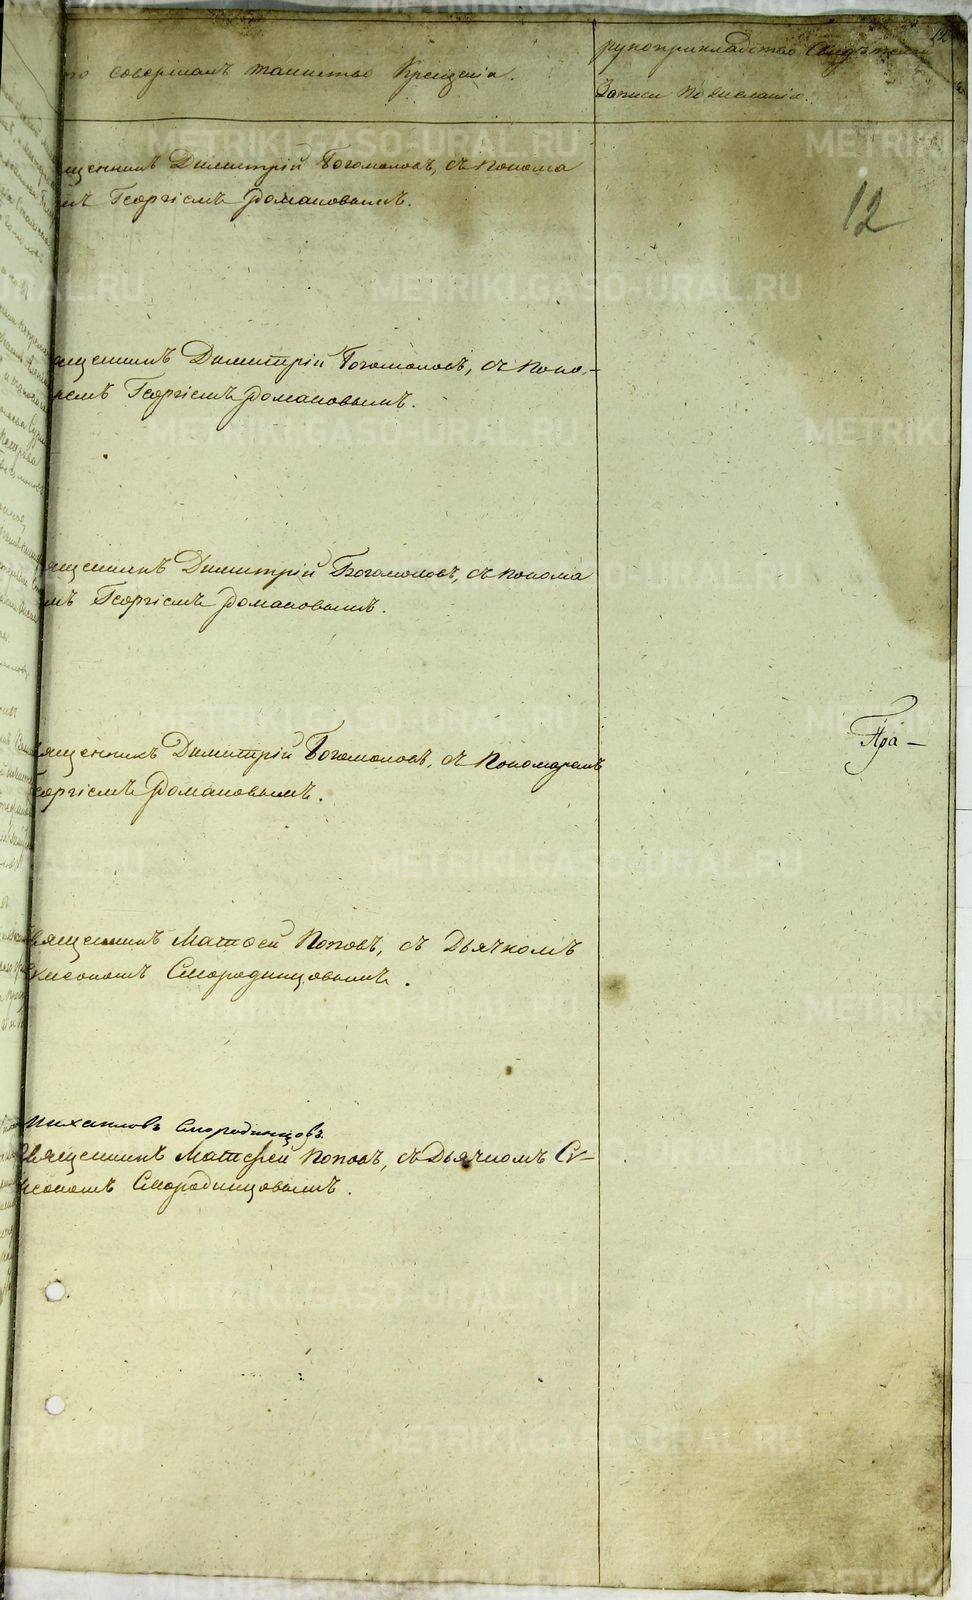 то совершалъ таинство Крещенія.
рукоприкладство Свидѣтелей
Записи по желанію.
12
щенникъ Димитрій Богомоловъ, съ Понома
мъ Георгіемъ Романовымъ.
12
ященникъ Димитрій Богомоловъ, съ Поно-
ремъ Георгіемъ Романовымъ.
ященникъ Димитрій Богомоловъ, съ Понома
мъ Георгіемъ Романовымъ.
ященникъ Димитрій Богомоловъ, съ Пономаремъ
Георгіемъ Романовымъ.
Пра-
вященникъ Матѳей Поповъ, съ Дьячкомъ
Смородинцовымъ.
Михаиловъ Смородинцовъ.
Священникъ Матѳей Поповъ, съ Дьячкомъ Си-
меономъ Смородинцовымъ.
METRIKI.GASO-URAL.RU